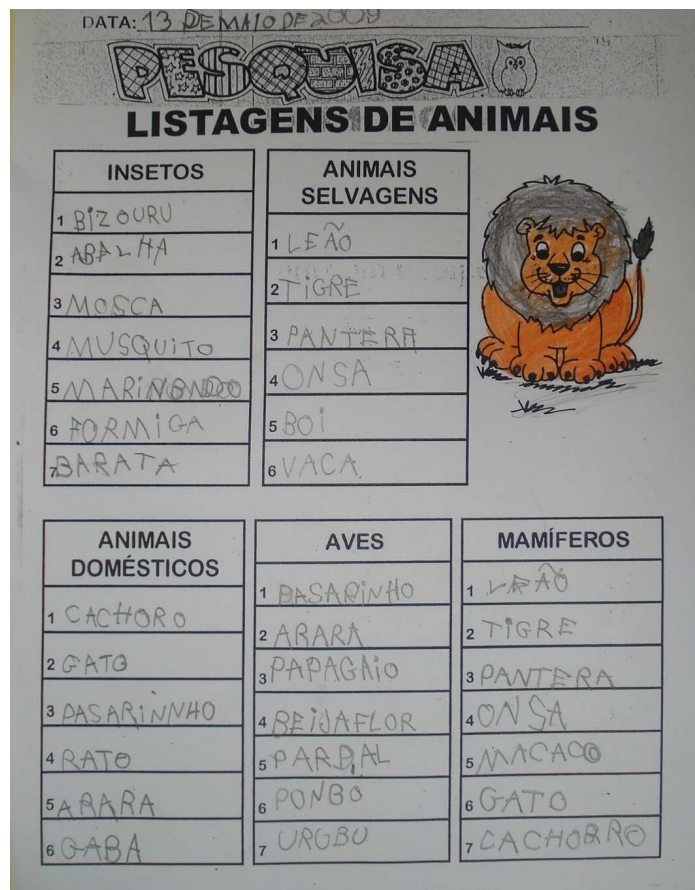 DATA: 13 DE MAIO DE 2009
PESQUISA
LISTAGENS DE ANIMAIS
INSETOS
1 BIZOURU
2 ABALHA
3 MOSCA
4 MUSQUITO
5 MARIMBONDO
6 FORMIGA
7 BARATA
ANIMAIS
SELVAGENS
1 LEÃO
2 TIGRE
3 PANTERA
4 ONSA
5 BOI
6 VACA
ANIMAIS
DOMÉSTICOS
1 CACHORO
2 GATO
3 PASARINNHO
4 RATO
5 ARARA
6 GABA
AVES
1 PASARINHO
2 ARARA
3 PAPAGAIO
4 BEIJAFLOR
5 PARDAL
6 PONBO
7 URUBU
MAMÍFEROS
1 LEÃO
2 TIGRE
3 PANTERA
4 ONSA
5 MACACO
6 GATO
7 CACHORRO